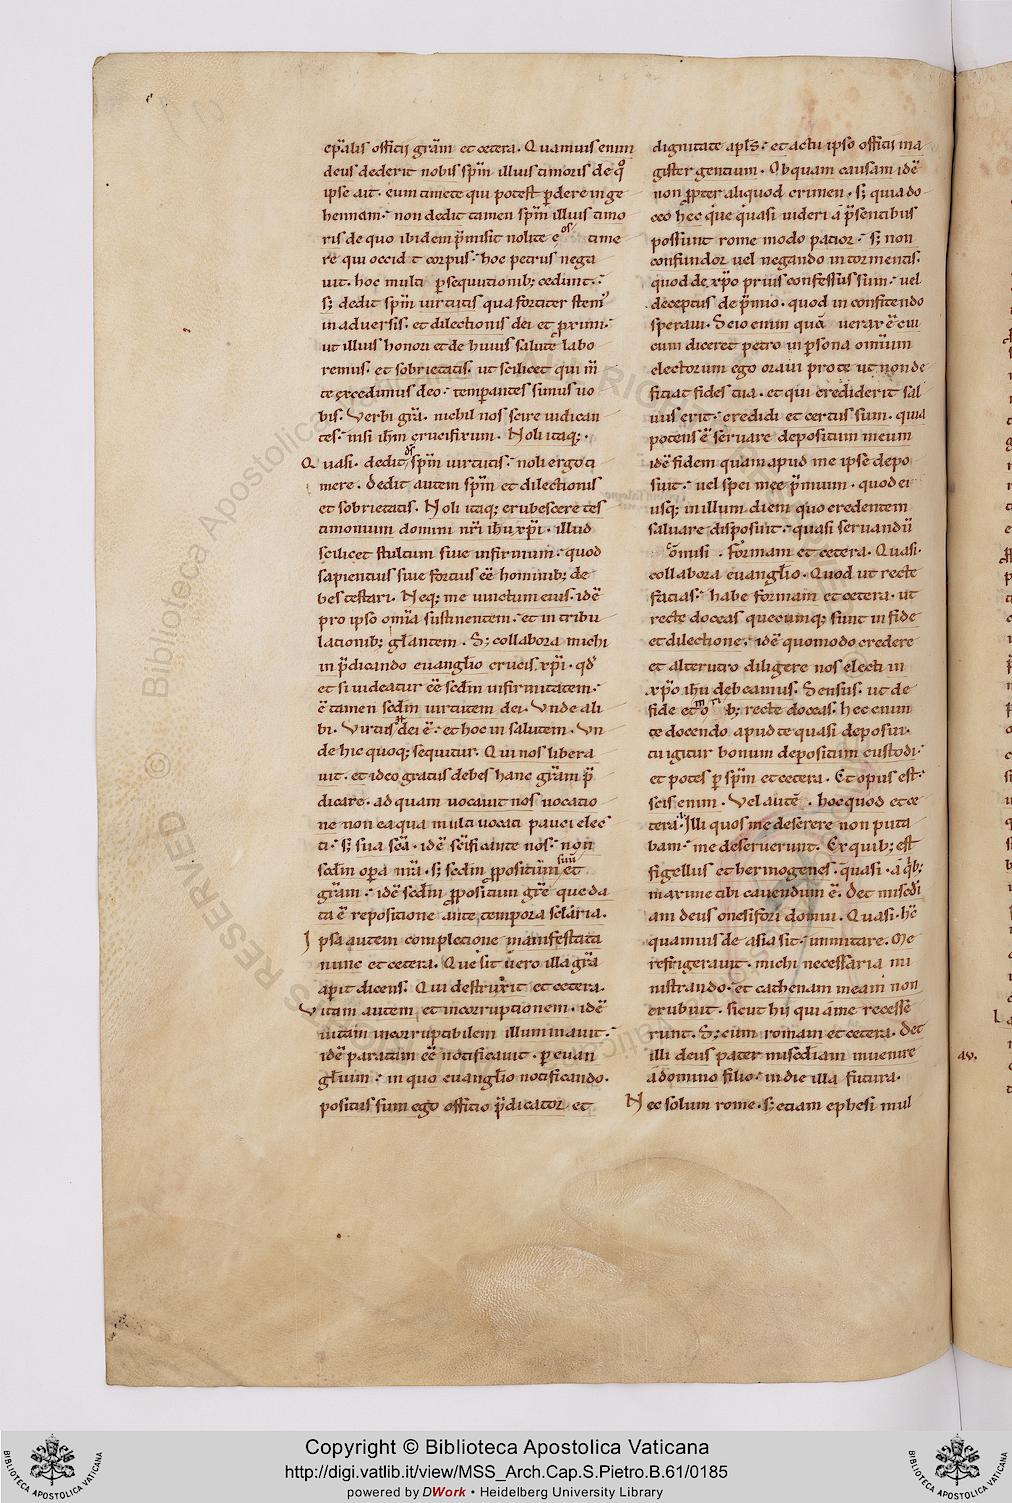 ep̃alis officij grãm et cetera. Quamuis enim
deus dederit nobis sp̃m illius timoris de qͦ
ipse ait. eum timete qui potest ꝑdere in ge
hennam. non dedit tamen sp̃m illius timo
ris de quo ibidem p̃misit nolite eos time
re qui occidt corpus. hoc petrus nega
uit. hoc multi ꝑsequutionib; cedunt.
s; dedit sp̃m uirtutis qua fortiter stem
in aduersis. et dilectionis dei et ꝓximi.
ut illius honori et de huius salute labo
remus. et sobrietatis. ut scilicet qui m̃
te excedimus deo. temperantes simus uo
bis. Verbi grã. nichil nos scire iudican
tes. nisi ihm̃ crucifixum. Noli itaq;.
Quasi. dedit ds̃ sp̃m uirtutis. noli ergo ti
mere. dedit autem sp̃m et dilectionis
et sobrietatis. Noli itaq; erubescere tes
timonium domini nr̃i ihũ xp̃i. illud
scilicet stultum siue infirmum. quod
sapientius siue fortius eẽ hominib; de
bes testari. Neq; me uinctum eius. idẽ
pro ipso omĩa sustinentem. et in tribu
lationib; gl̃antem. S; collabora michi
in p̃dicando euangl̃io crucis xp̃i. qđ
et si uideatur eẽ scdm̃ infirmitatem.
ẽ tamen scdm̃ uirtutem dei. Vnde ali
bi. Virtus dei ẽ. et hoc in salutem. Vn
de hic quoq; sequitur. Qui nos libera
uit. et ideo gratis debes hanc grãm p̃
dicare. ad quam uocauit nos uocatio
ne non ea qua multi uocati pauci elec
ti. s; sua scã. idẽ scĩficante nos. non
scdm̃ oꝑa nr̃a. s; scdm̃ ꝓpositum suũ et
grãm. idẽ scdm̃ ꝓpositum grẽ que da
ta ẽ repositione ante tempora sclãria.
Ipsa autem completione manifestata
nunc et cetera. Que sit uero illa grã
aperit dicens. Qui destruxit et cetera.
Vitam autem et incorruptionem. idẽ
uitam incorruptibilem illuminauit.
idẽ paratam eẽ notificauit. ꝑ euan
glium. in quo euangl̃io notificando.
positus sum ego officio p̃dicator et
dignitate apls̃. et actu ipso officij ma
gister gentium. Ob quam causam idẽ
non ꝓpter aliquod crimen. s; quia do
ceo hec que quasi uideri a p̃sentibus
possunt rome modo patior. s; non
confundor uel negando in tormentis.
quod de xp̃o prius confessus sum. uel
deceptus de p̃mio. quod in confitendo
speraui. Scio enim quã uerax ẽ cui
cum diceret petro in ꝑsona omnium
electorum ego oraui pro te ut non de
ficiat fides tua. et qui crediderit sal
uus erit. credidi et certus sum. quia
potens ẽ seruare depositum meum
idẽ fidem quam apud me ipse depo
suit. uel spei mee p̃mium. quod ei
usq; in illum diem quo credentem
saluare disposuit. quasi seruandũ
. Formam et cetera. Quasi.
collabora euangl̃io. Quod ut recte
facias. habe formam et cetera. ut
recte doceas quecumq; sunt in fide
et dilectione. idẽ quomodo credere
et alterutro diligere nos electi in
xp̃o ihũ debeamus. Sensus. ut de
fide et b; recte doceas. hec enim
te docendo apud te quasi deposui.
tu igitur bonum depositum custodi.
et potes ꝑ sp̃m et cetera. Et opus est.
scis enim. Vel autẽ. hoc quod et ce
tera. Illi quos me deserere non puta
bam. me deseruerunt. Ex quib; est
figellus et hermogenes. quasi. a qb;
maxime tibi cauendum ẽ. Det misedi
am deus onesifori domui. Quasi. hic
quamuis de asia sit. imitare. Me
refrigerauit. michi necessaria mi
nistrando. et cathenam meam non
erubuit. sicut hij qui a me recesse
runt. S; cum romam et cetera. Det
illi deus pater misedĩam inuenire
a domino filio. in die illa futura.
Nec solum rome. s; etiam ephesi mul
Copyright © Biblioteca Apostolica Vaticana
http://digi.vatlib.it/view/MSS_Arch.Cap.S.Pietro.B.61/0185
powered by DWork • Heidelberg University Library